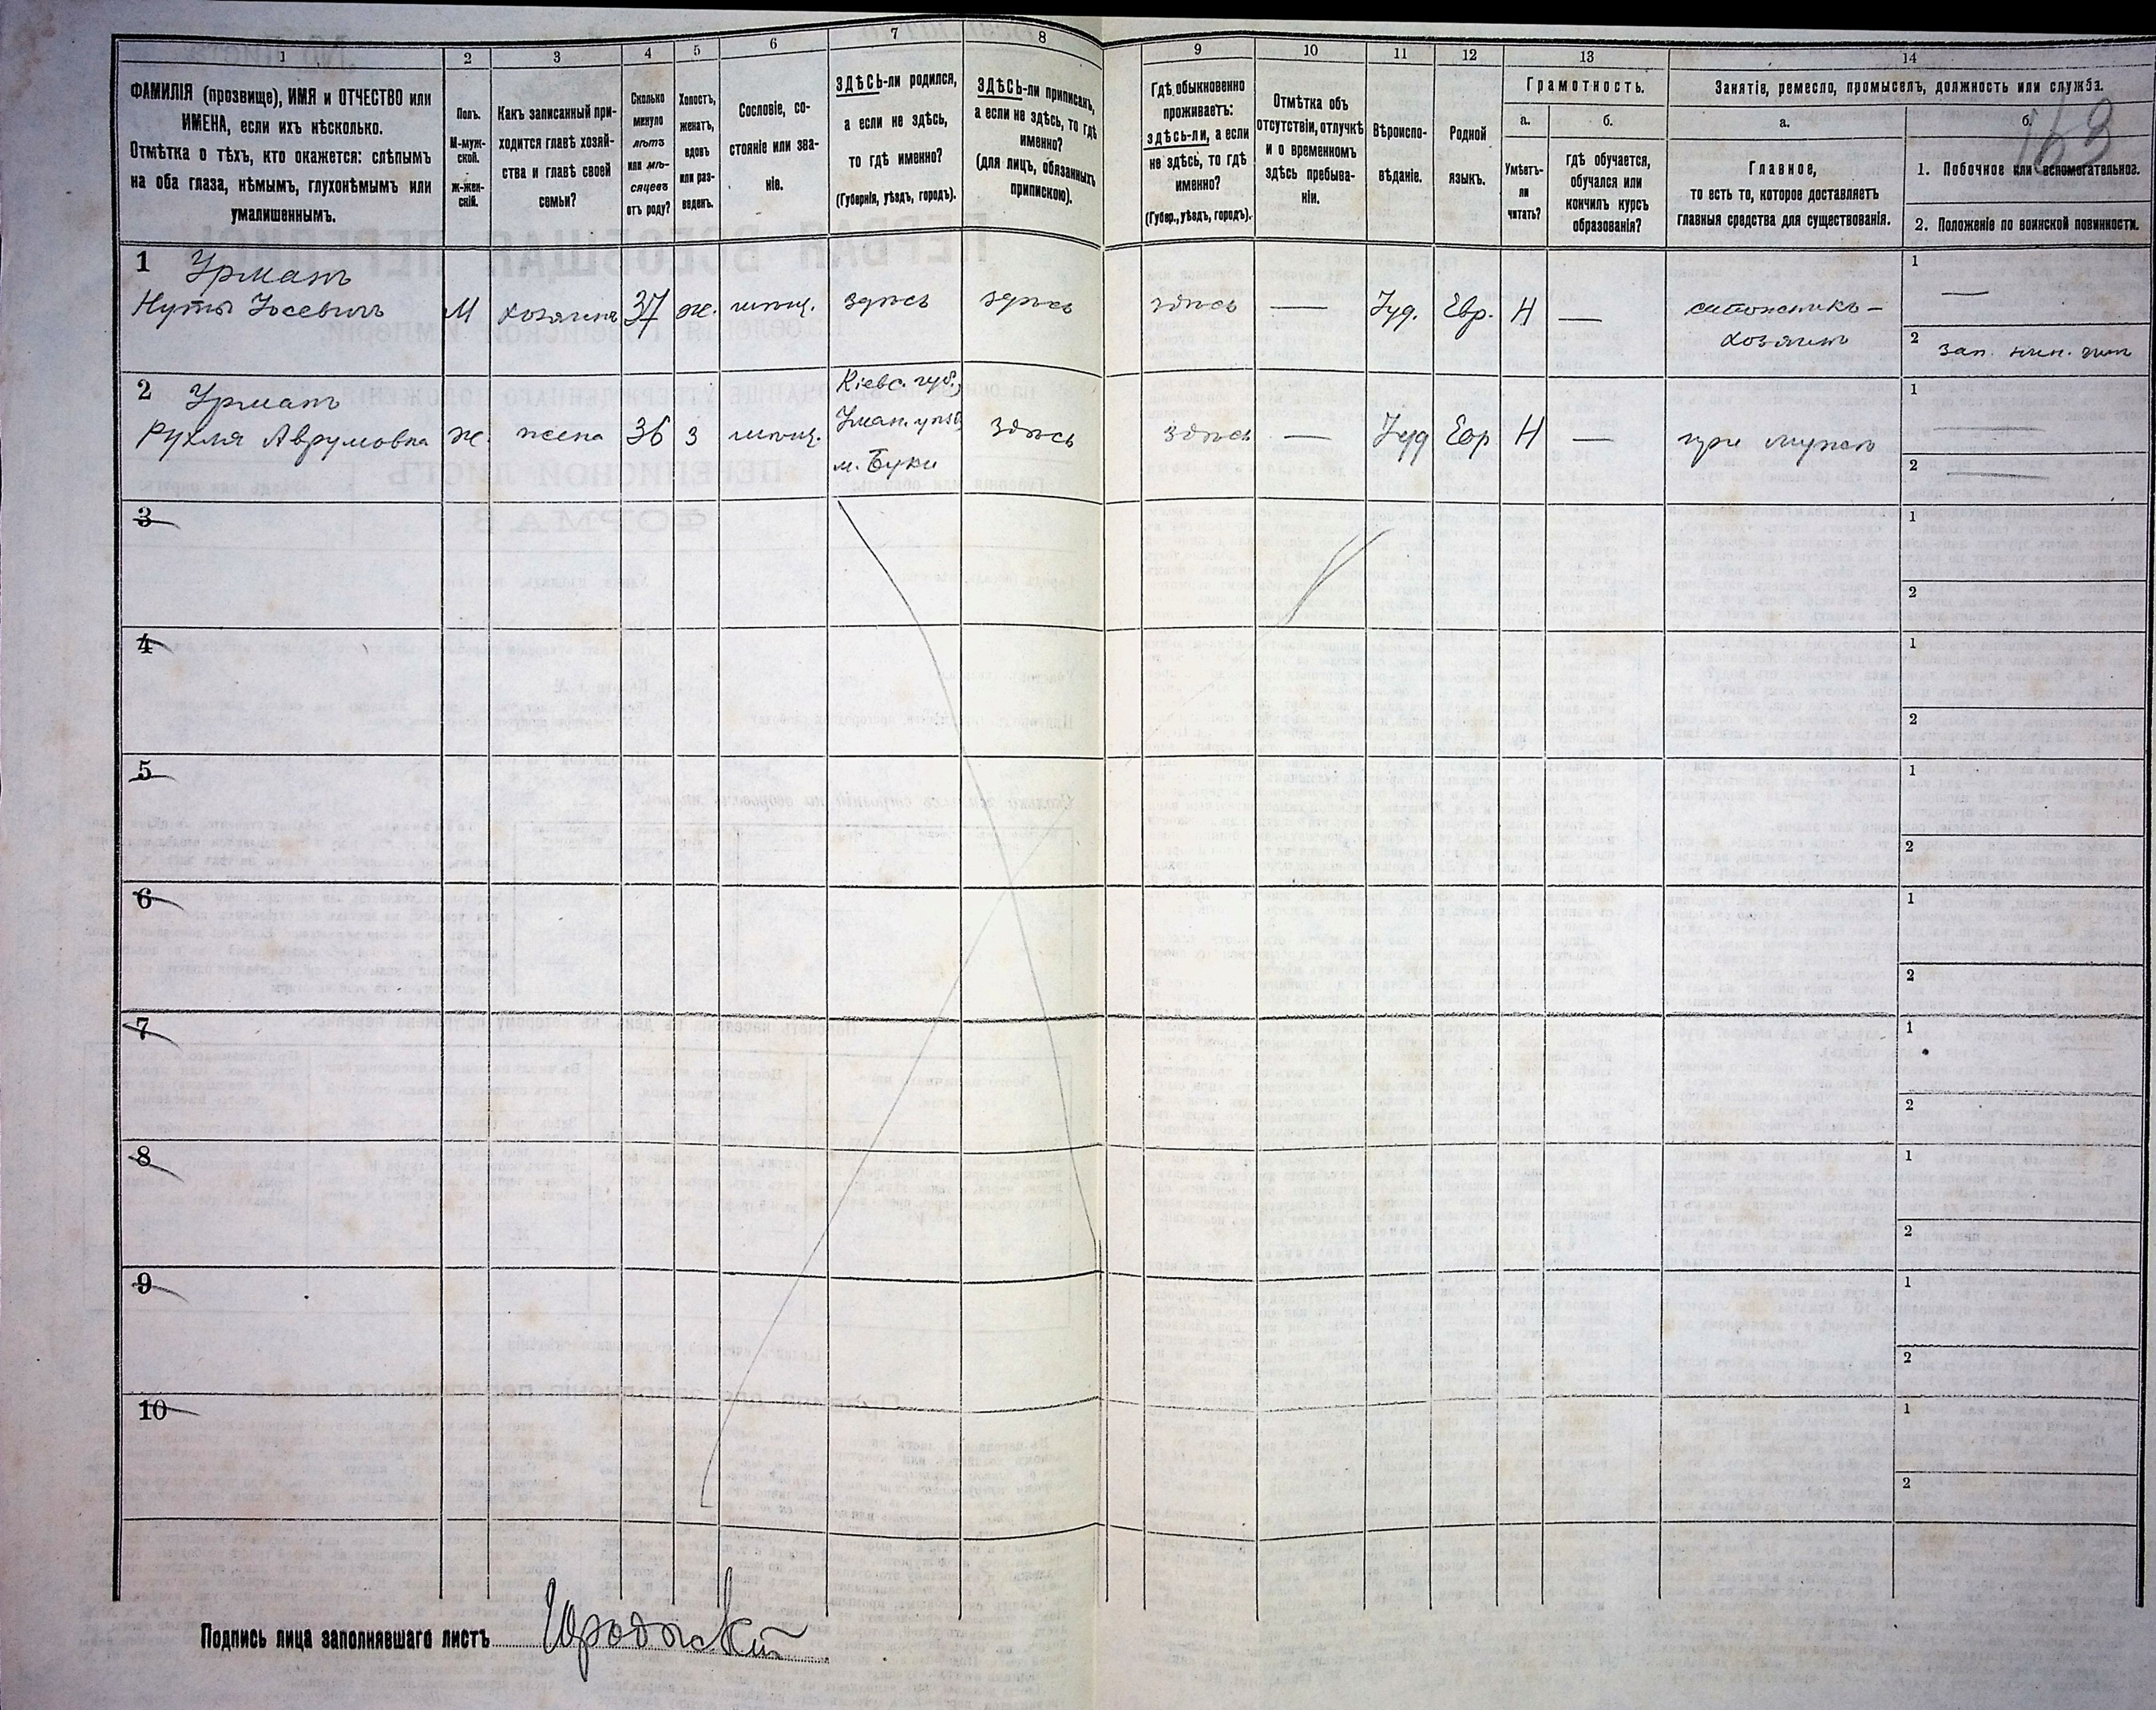 1 2 3 4 5 6 7 8 9 10 11 12 13 14
ФАМИЛІЯ (прозвище), ИМЯ и ОТЧЕСТВО или
ИМЕНА, если ихъ нѣсколько.
Отмѣтка о тѣхъ, кто окажется: слѣпымъ
на оба глаза, нѣмымъ, глухонѣмымъ или
умалишеннымъ.
Полъ.
М-муж-
ской.
ж-жен-
скій.
Какъ записанный при-
ходится главѣ хозяй-
ства и главѣ своей
семьи?
Сколько
минуло
лѣтъ
или мѣ-
сяцевъ
отъ роду?
Холостъ,
женатъ,
вдовъ
или раз-
веденъ.
Сословіе, со-
стояніе или зва-
ніе.
ЗДѢСЬ-ли родился,
а если не здѣсь,
то гдѣ именно?
(Губернія, уѣздъ, городъ).
ЗДѢСЬ-ли приписанъ,
а если не здѣсь, то гдѣ
именно?
(для лицъ, обязанныхъ
припискою).
Гдѣ обыкновенно
проживаетъ:
здѣсь-ли, а если
не здѣсь, то гдѣ
именно?
(Губер., уѣздъ, городъ).
Отмѣтка объ
отсутствіи, отлучкѣ
и о временномъ
здѣсь пребыва-
ніи.
Вѣроиспо-
вѣданіе.
Родной
языкъ.
Грамотность.
а.
Умѣетъ-
ли
читать?
б.
Гдѣ обучается,
обучался или
кончилъ курсъ
образованія?
Занятіе, ремесло, промыселъ, должность или служба.
а.
Главное,
то есть то, которое доставляетъ
главныя средства для существованія.
б.
163
1. Побочное или вспомогательное.
2. Положеніе по воинской повинности.
1 Урманъ
Нута Іосевичъ М хозяинъ 37 ж. мѣщ. здѣсь здѣсь здѣсь — Іуд. Евр. Н —
хозяинъ
1 —
2
2 Урманъ
Рухля Аврумовна ж. жена 36 з мѣщ.
Кіевс. губ.,
Уман. уѣзд
м. Буки
здѣсь здѣсь — Іуд Евр Н — при мужѣ
1 —
2 —
3
1
2
4
1
2
5
1
2
6
1
2
7
1
2
8
1
2
9
1
2
10
1
2
Подпись лица заполнявшаго листъ